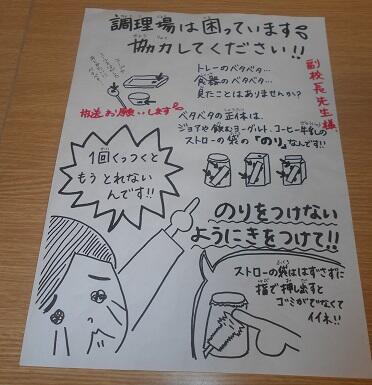 調理場は困っています
協力してください!!
副校長先生様
トレーのベタベタ…
食器のベタベタ…
見たことはありませんか?
放送お願いします
ベタベタの正体は、
ジョアや飲むヨーグルト、コーヒー牛乳の
ストローの袋の「のり」なんです!!
1回くっつくと
もうとれない
んです!!
のりをつけない
ようにきをつけて!!
ストローの袋ははずさずに
指で押し出すと
ゴミがでなくて
イイネ!!